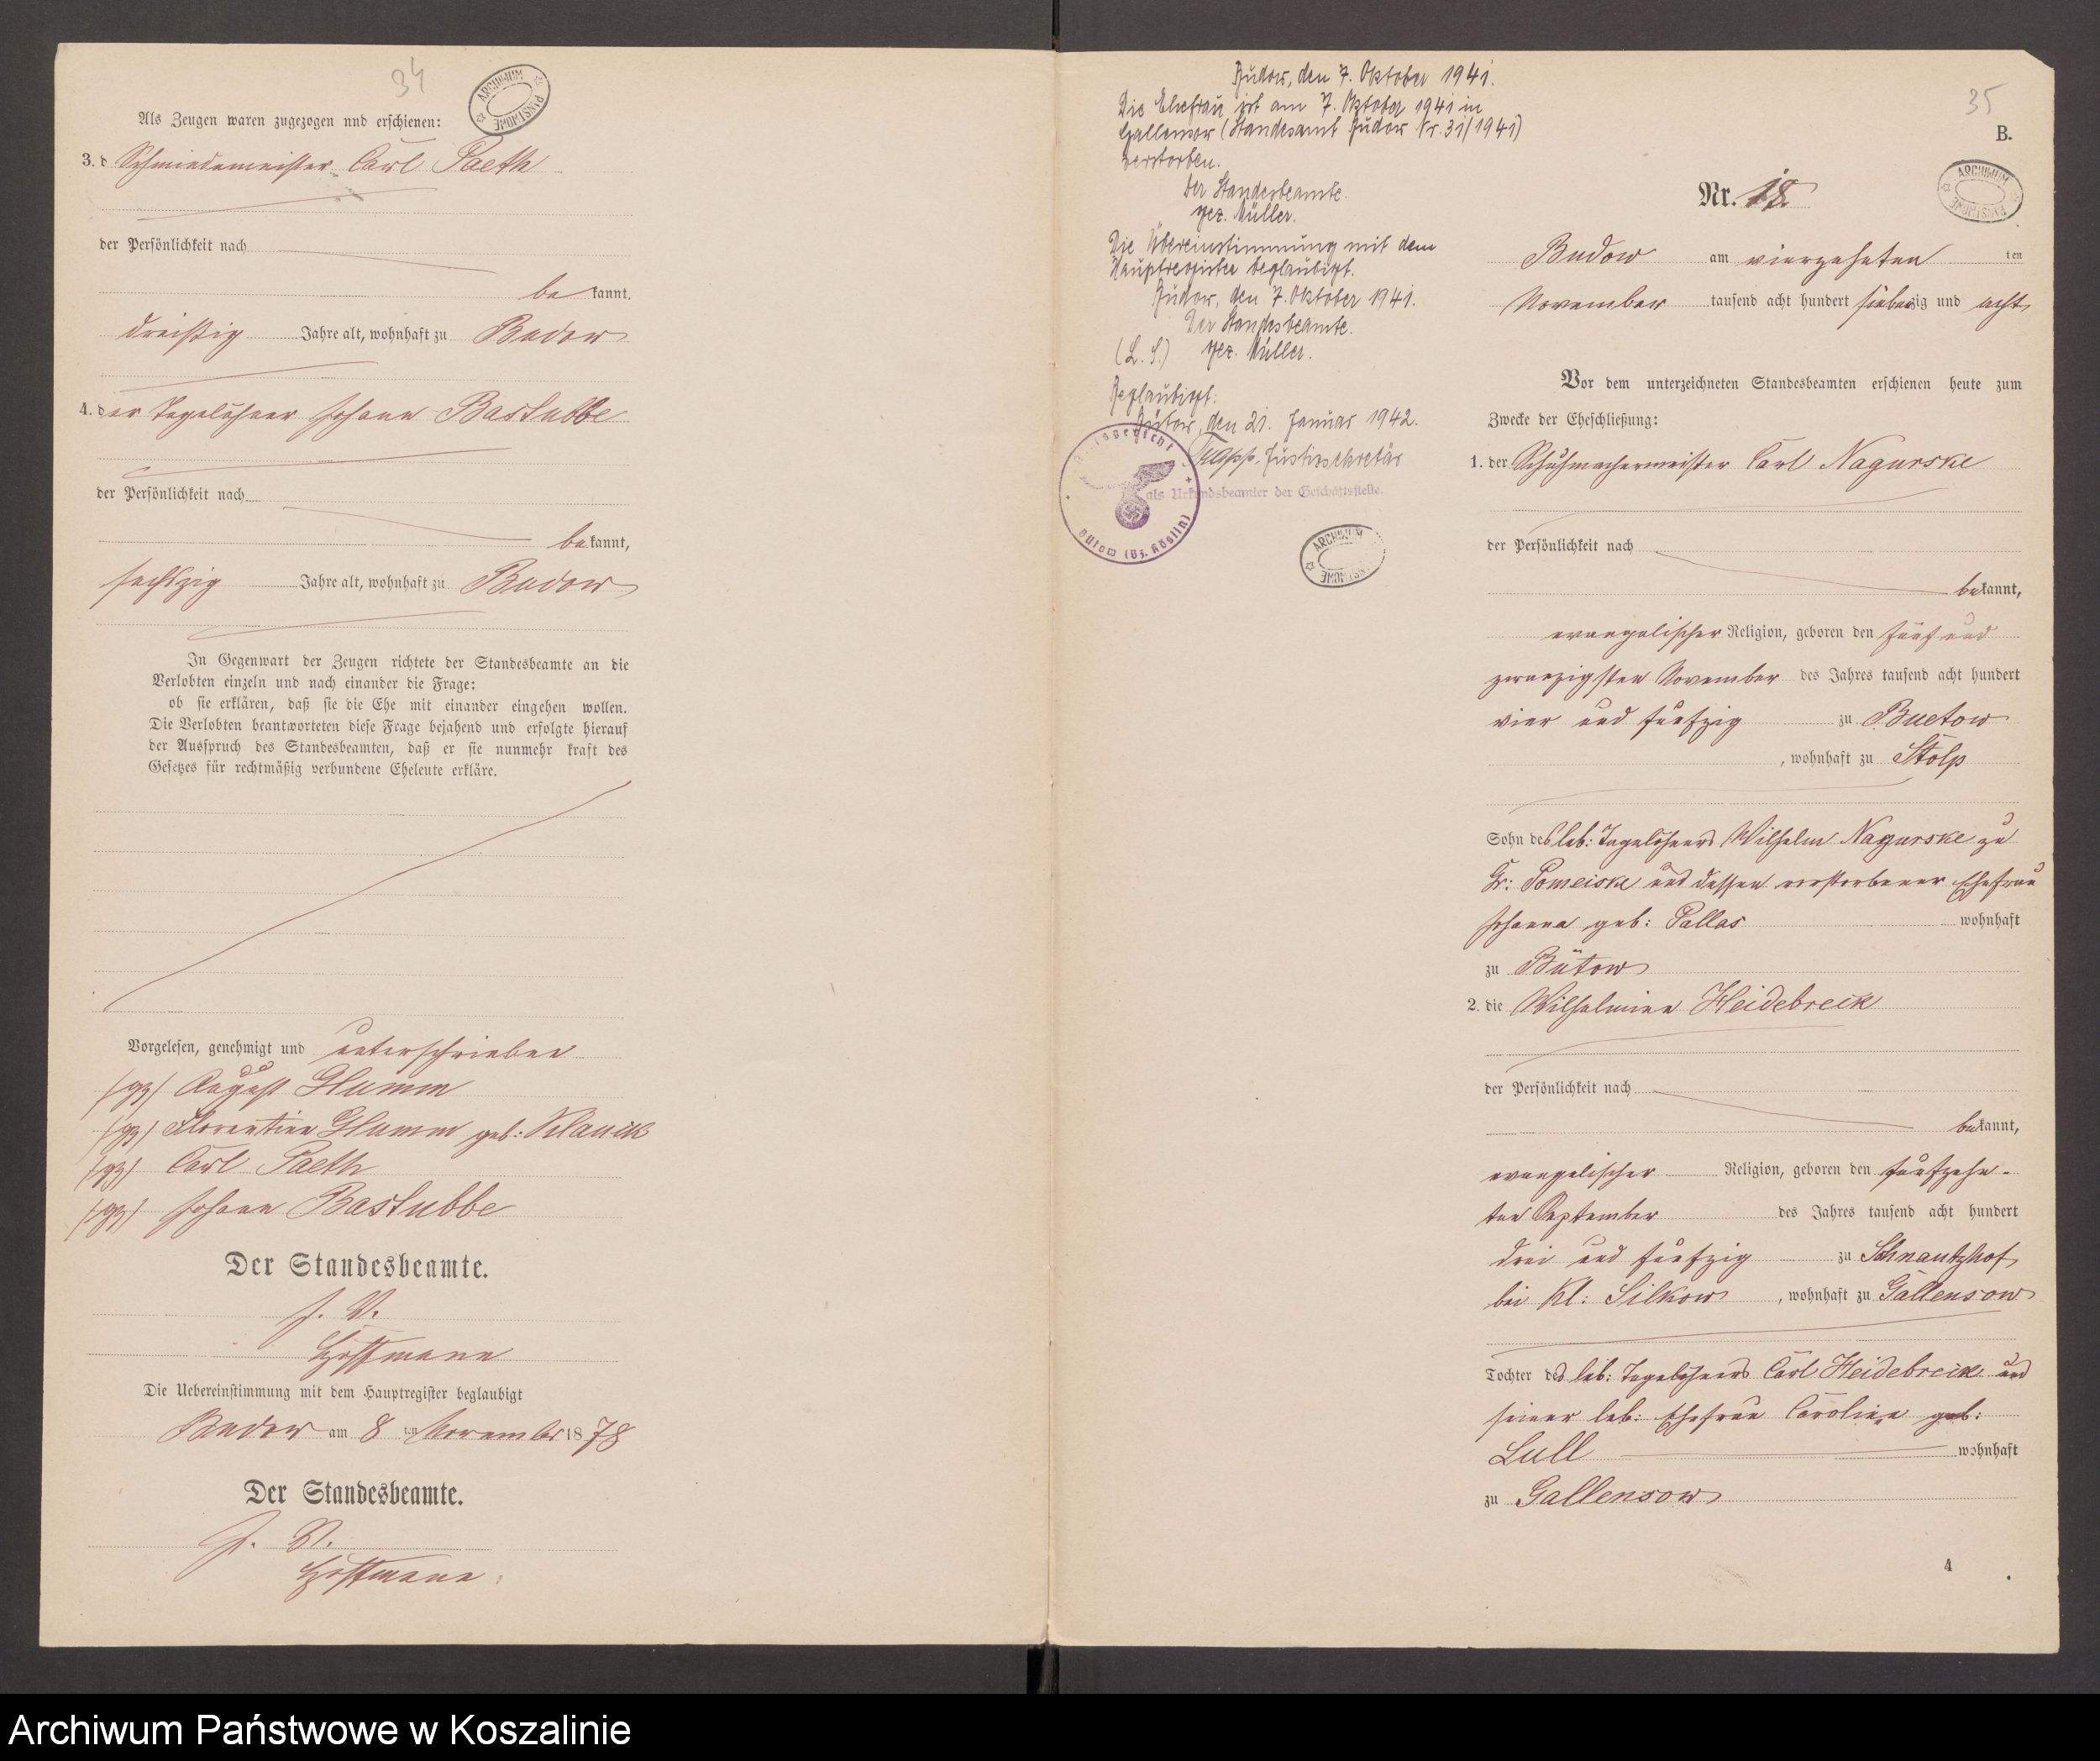 34
ARCHIWUM PAŃSTWOWE
Als Zeugen waren zugezogen und erschienen:
3. d Schmiedemeister Carl Paeth
der Persönlichkeit nach
bekannt.
dreißig Jahre alt, wohnhaft zu Budow
4. der Tagelöhner Johann Bastubbe
der Persönlichkeit nach
bekannt,
sechszig Jahre alt, wohnhaft zu Budow
In Gegenwart der Zeugen richtete der Standesbeamte an die
Verlobten einzeln und nach einander die Frage:
ob sie erklären, daß sie die Ehe mit einander eingehen wollen.
Die Verlobten beantworteten diese Frage bejahend und erfolgte hierauf
der Ausspruch des Standesbeamten, daß er sie nunmehr kraft des
Gesetzes für rechtmäßig verbundene Eheleute erkläre.
Vorgelesen, genehmigt und unterschrieben
(gz) August Glumm
(gz) Florentine Glumm geb: Klauck
(gz) Carl Paeth
(gz) Johann Bastubbe
Der Standesbeamte.
J. V.
Hoffmann
Die Uebereinstimmung mit dem Hauptregister beglaubigt
Budow am 8 ten November 1878
Der Standesbeamte.
J. V.
Hoffmann
Budow, den 7. Oktober 1941.
Die Ehefrau ist am 7. Oktober 1941 in
Gallensow (Standesamt Budow Nr. 31/1941)
verstorben.
Der Standesbeamte.
gez. Müller.
Die Übereinstimmung mit dem
Hauptregister beglaubigt.
Budow, den 7. Oktober 1941.
Der Standesbeamte.
(L. S.) gez. Müller.
Beglaubigt:
Bütow, den 21. Januar 1942.
Trapp, Justizsekretär
als Urkundsbeamter der Geschäftsstelle.
Amtsgericht
Bütow (Bz. Köslin)
ARCHIWUM PAŃSTWOWE
35
B.
ARCHIWUM PAŃSTWOWE
Nr. 18.
Budow am vierzehnten ten
November tausend acht hundert siebenzig und acht
Vor dem unterzeichneten Standesbeamten erschienen heute zum
Zwecke der Eheschließung:
1. der Schuhmachermeister Carl Nagurske
der Persönlichkeit nach
bekannt,
evangelischer Religion, geboren den fünf und
zwanzigsten November des Jahres tausend acht hundert
vier und fünfzig zu Buetow
, wohnhaft zu Stolp
Sohn des leb: Tagelöhners Wilhelm Nagurske zu
Gr: Pomeiske und dessen verstorbener Ehefrau
Johanna geb: Pallas wohnhaft
zu Bütow
2. die Wilhelmine Heidebreck
der Persönlichkeit nach
bekannt,
evangelischer Religion, geboren den fünfzehn-
ten September des Jahres tausend acht hundert
drei und fünfzig zu Schnautzhof
bei Kl: Silkow , wohnhaft zu Gallensow
Tochter des leb: Tagelöhners Carl Heidebreck und
seiner leb: Ehefrau Caroline geb:
Lull wohnhaft
zu Gallensow
4
Archiwum Państwowe w Koszalinie